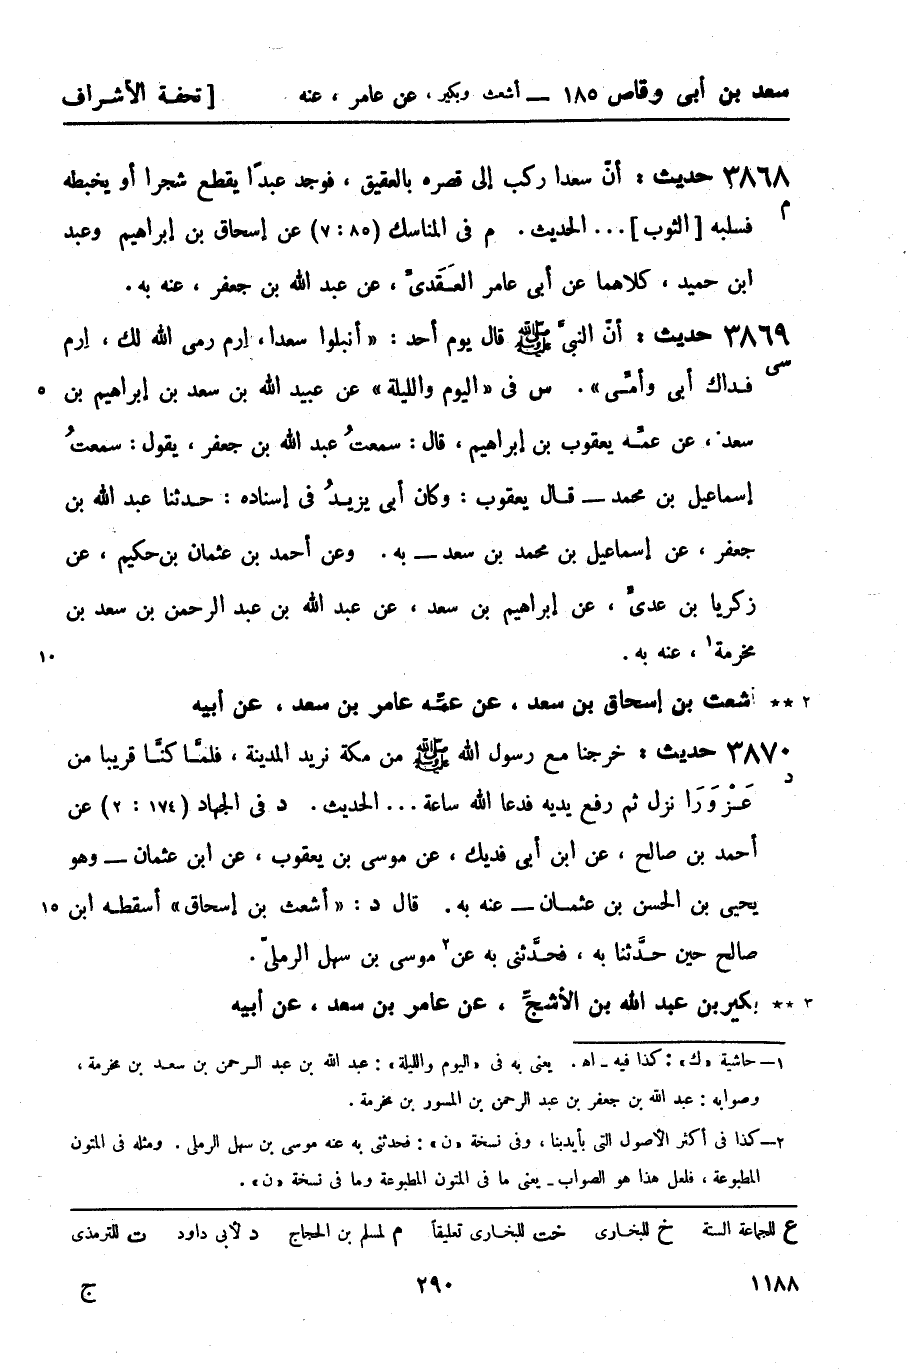 سعد بن أبى وقاص ١٨٥ — أشعث وبكير ، عن عامر ، عنه [ تحفة الأشراف
٣٨٦٨ حديث : أنّ سعدا ركب إلى قصره بالعقيق ، فوجد عبدًا يقطع شجرا أو يخبطه
م فسلبه [ الثوب ] ... الحديث . م فى المناسك (٨٥ : ٧) عن إسحاق بن إبراهيم وعبد
ابن حميد ، كلاهما عن أبى عامر العَقَدىّ ، عن عبد الله بن جعفر ، عنه به .
٣٨٦٩ حديث : أنّ النبىّ ﷺ قال يوم أحد : « أنبلوا سعدا ، اِرم رمى الله لك ، اِرم
سى فداك أبى وأمّى » . س فى « اليوم والليلة » عن عبيد الله بن سعد بن إبراهيم بن ٥
سعد ، عن عمّه يعقوب بن إبراهيم ، قال : سمعتُ عبد الله بن جعفر ، يقول : سمعتُ
إسماعيل بن محمد — قال يعقوب : وكان أبى يزيدُ فى إسناده : حدثنا عبد الله بن
جعفر ، عن إسماعيل بن محمد بن سعد — به . وعن أحمد بن عثمان بن حكيم ، عن
زكريا بن عدىّ ، عن إبراهيم بن سعد ، عن عبد الله بن عبد الرحمن بن سعد بن
مخرمة١ ، عنه به . ١٠
٢ ** أشعث بن إسحاق بن سعد ، عن عمّه عامر بن سعد ، عن أبيه
٣٨٧٠ حديث : خرجنا مع رسول الله ﷺ من مكة نريد المدينة ، فلمّا كنّا قريبا من
د عَزْوَرَا نزل ثم رفع يديه فدعا الله ساعة ... الحديث . د فى الجهاد (١٧٤ : ٢) عن
أحمد بن صالح ، عن ابن أبى فديك ، عن موسى بن يعقوب ، عن ابن عثمان — وهو
يحيى بن الحسن بن عثمان — عنه به . قال د : « أشعث بن إسحاق » أسقطه ابن ١٥
صالح حين حدَّثنا به ، فحدَّثنى به عن٢ موسى بن سهل الرملىّ .
٣ ** بكير بن عبد الله بن الأشجّ ، عن عامر بن سعد ، عن أبيه
١ — حاشية « ك » : كذا فيه ـ اه . يعنى به فى « اليوم والليلة » : عبد الله بن عبد الرحمن بن سعد بن مخرمة ،
وصوابه : عبد الله بن جعفر بن عبد الرحمن بن المسور بن مخرمة .
٢ — كذا فى أكثر الأصول التى بأيدينا ، وفى نسخة « ن » : فحدثنى به عنه موسى بن سهل الرملى . ومثله فى المتون
المطبوعة ، فلعل هذا هو الصواب ـ يعنى ما فى المتون المطبوعة وما فى نسخة « ن » .
ع للجماعة الستة خ للبخارى خت للبخارى تعليقاً م لمسلم بن الحجاج د لأبى داود ت للترمذى
١١٨٨ ٢٩٠ ج